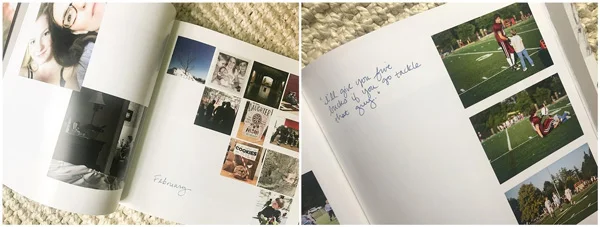 February
COOKIES
"I'll give you five
bucks if you go tackle
that guy."